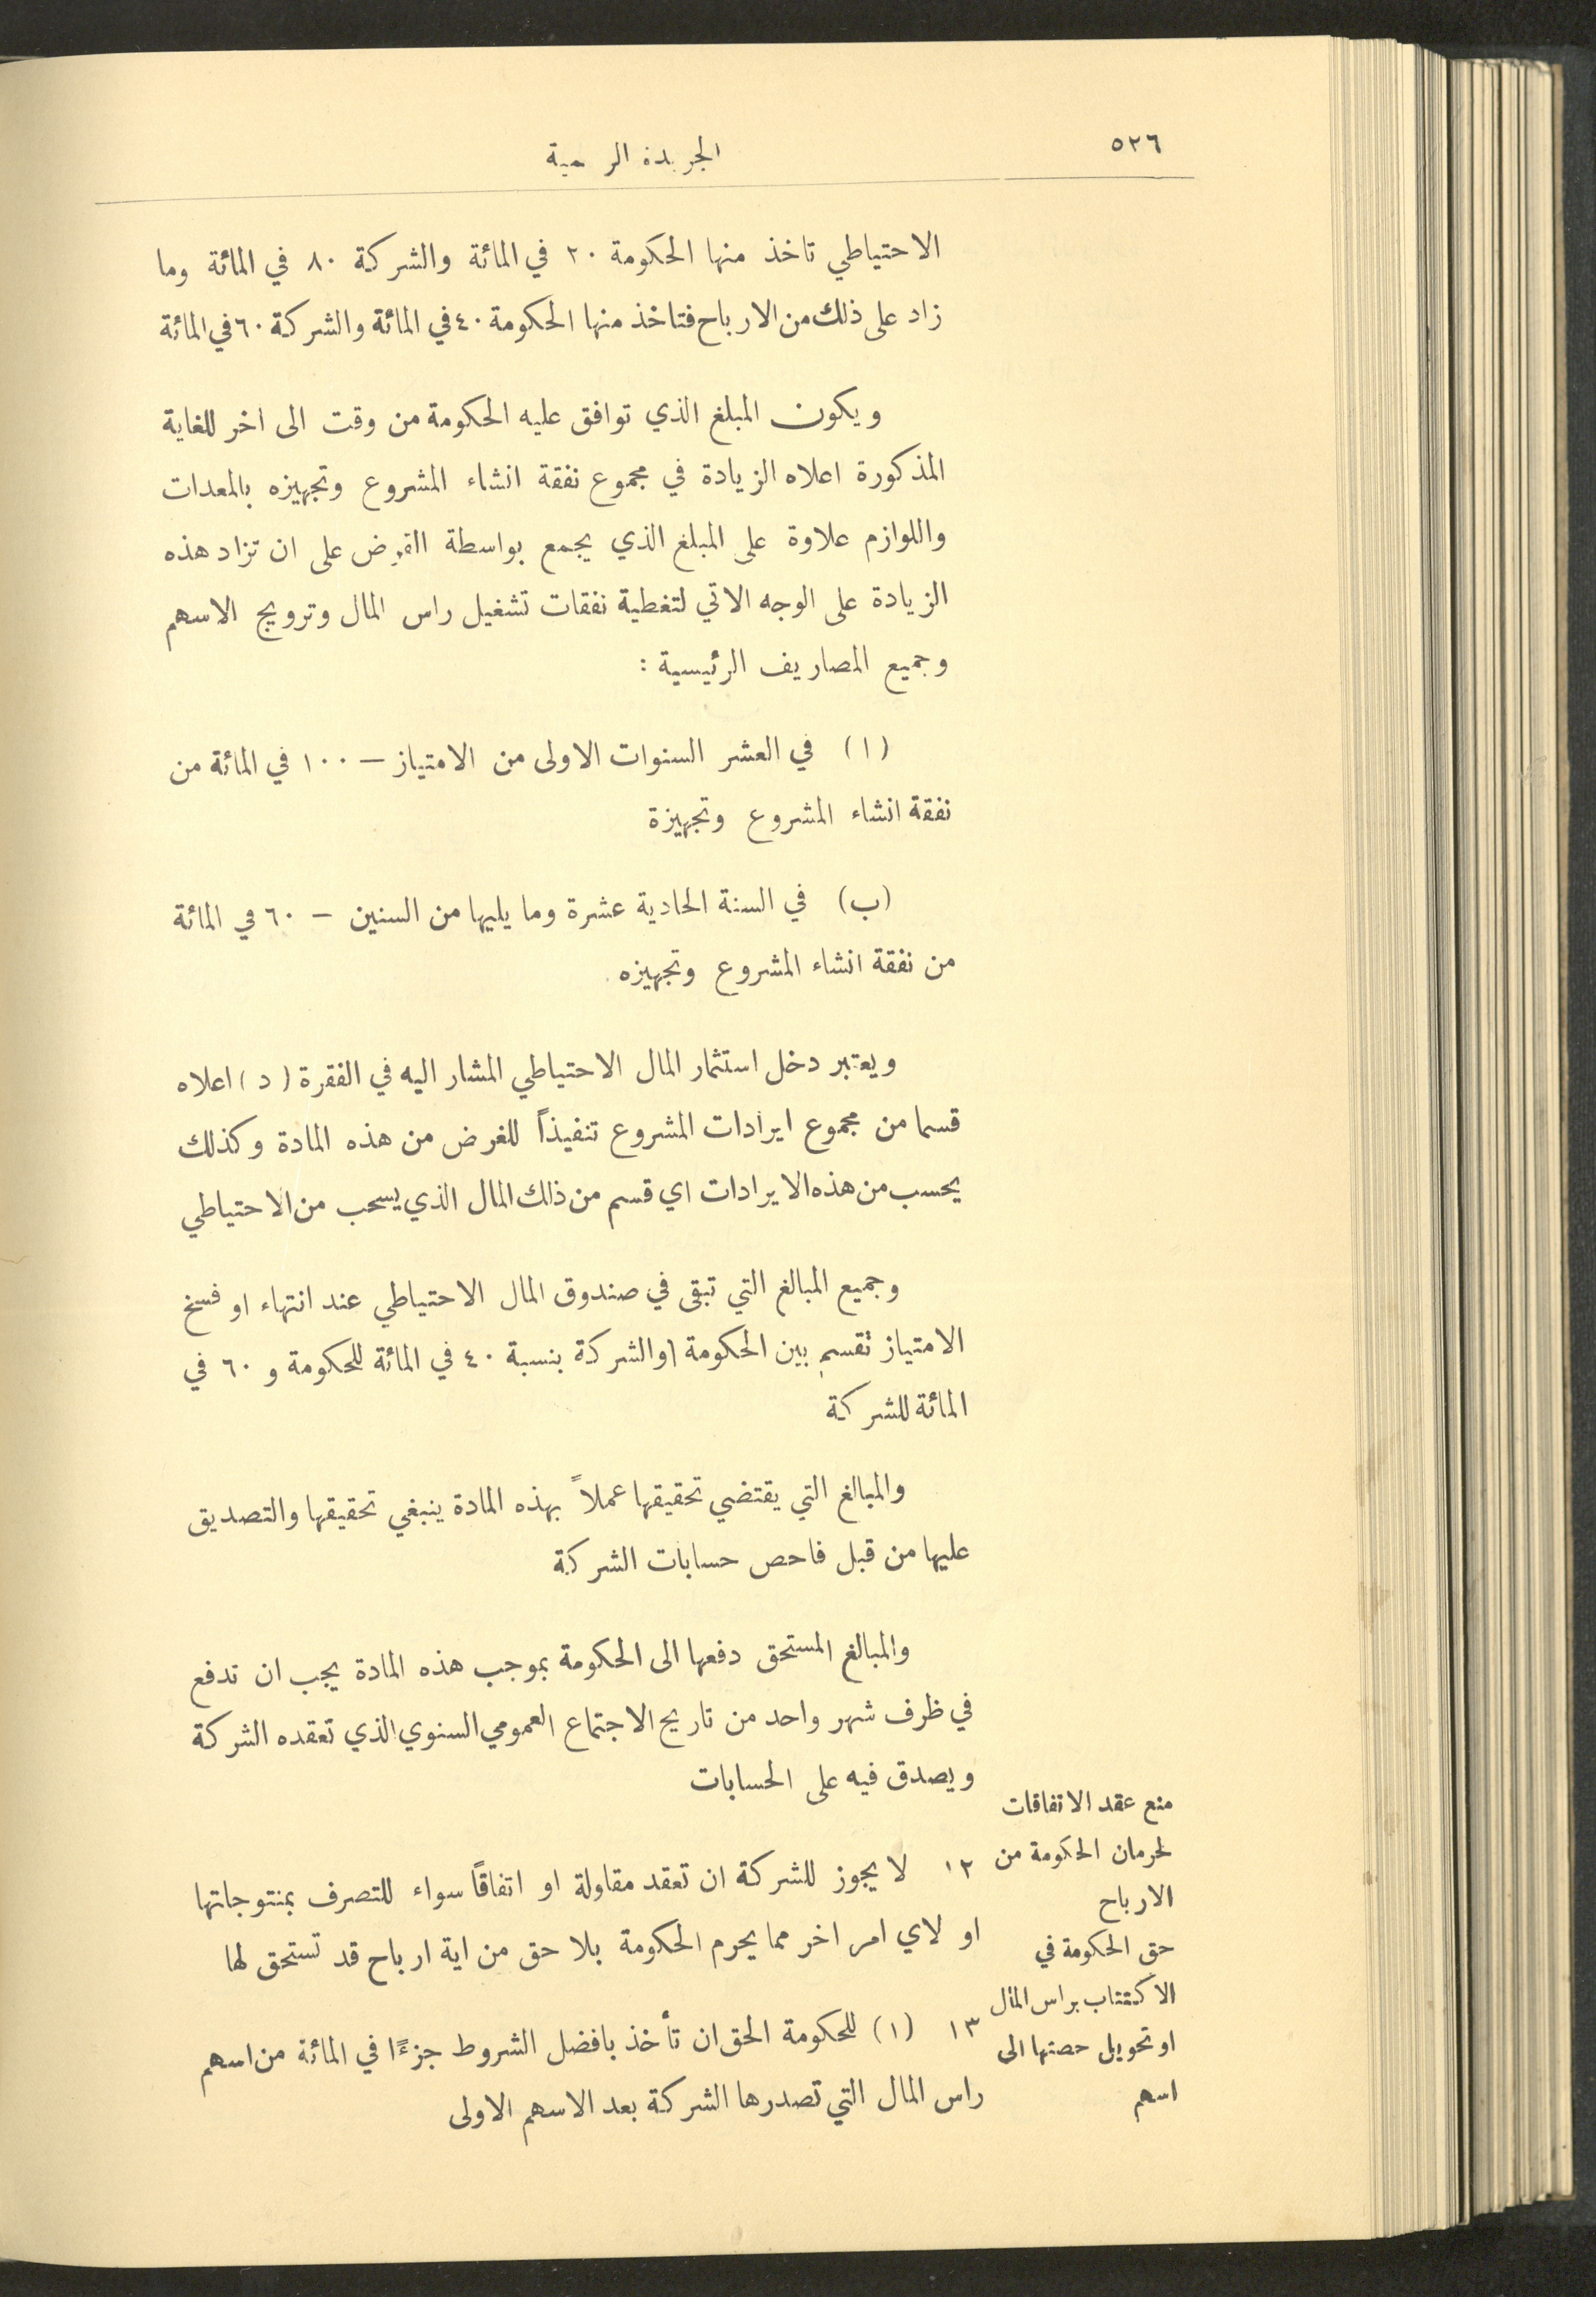 ٥٢٦
الجريدة الرسمية
الاحتياطي تاخذ منها الحكومة ٢٠ في المائة والشركة ٨٠ في المائة وما
زاد على ذلك من الارباح فتاخذ منها الحكومة ٤٠ في المائة والشركة ٦٠ في المائة
ويكون المبلغ الذي توافق عليه الحكومة من وقت الى اخر للغاية
المذكورة اعلاه الزيادة في مجموع نفقة انشاء المشروع وتجهيزه بالمعدات
واللوازم علاوة على المبلغ الذي يجمع بواسطة القرض على ان تزاد هذه
الزيادة على الوجه الاتي لتغطية نفقات تشغيل راس المال وترويج الاسهم
وجميع المصاريف الرئيسية :
(ا) في العشر السنوات الاولى من الامتياز — ١٠٠ في المائة من
نفقة انشاء المشروع وتجهيزة
(ب) في السنة الحادية عشرة وما يليها من السنين — ٦٠ في المائة
من نفقة انشاء المشروع وتجهيزه
ويعتبر دخل استثمار المال الاحتياطي المشار اليه في الفقرة (د) اعلاه
قسما من مجموع ايرادات المشروع تنفيذاً للغرض من هذه المادة وكذلك
يحسب من هذه الايرادات اي قسم من ذلك المال الذي يسحب من الاحتياطي
وجميع المبالغ التي تبقى في صندوق المال الاحتياطي عند انتهاء او فسخ
الامتياز تقسم بين الحكومة والشركة بنسبة ٤٠ في المائة للحكومة و ٦٠ في
المائة للشركة
والمبالغ التي يقتضي تحقيقها عملاً بهذه المادة ينبغي تحقيقها والتصديق
عليها من قبل فاحص حسابات الشركة
والمبالغ المستحق دفعها الى الحكومة بموجب هذه المادة يجب ان تدفع
في ظرف شهر واحد من تاريخ الاجتماع العمومي السنوي الذي تعقده الشركة
ويصدق فيه على الحسابات
منع عقد الاتفاقات
لحرمان الحكومة من
الارباح
١٢ لا يجوز للشركة ان تعقد مقاولة او اتفاقاً سواء للتصرف بمنتوجاتها
او لاي امر اخر مما يحرم الحكومة بلا حق من اية ارباح قد تستحق لها
حق الحكومة في
الاكتتاب براس المال
او تحويل حصتها الى
اسهم
١٣ (١) للحكومة الحق ان تأخذ بافضل الشروط جزءًا في المائة من اسهم
راس المال التي تصدرها الشركة بعد الاسهم الاولى